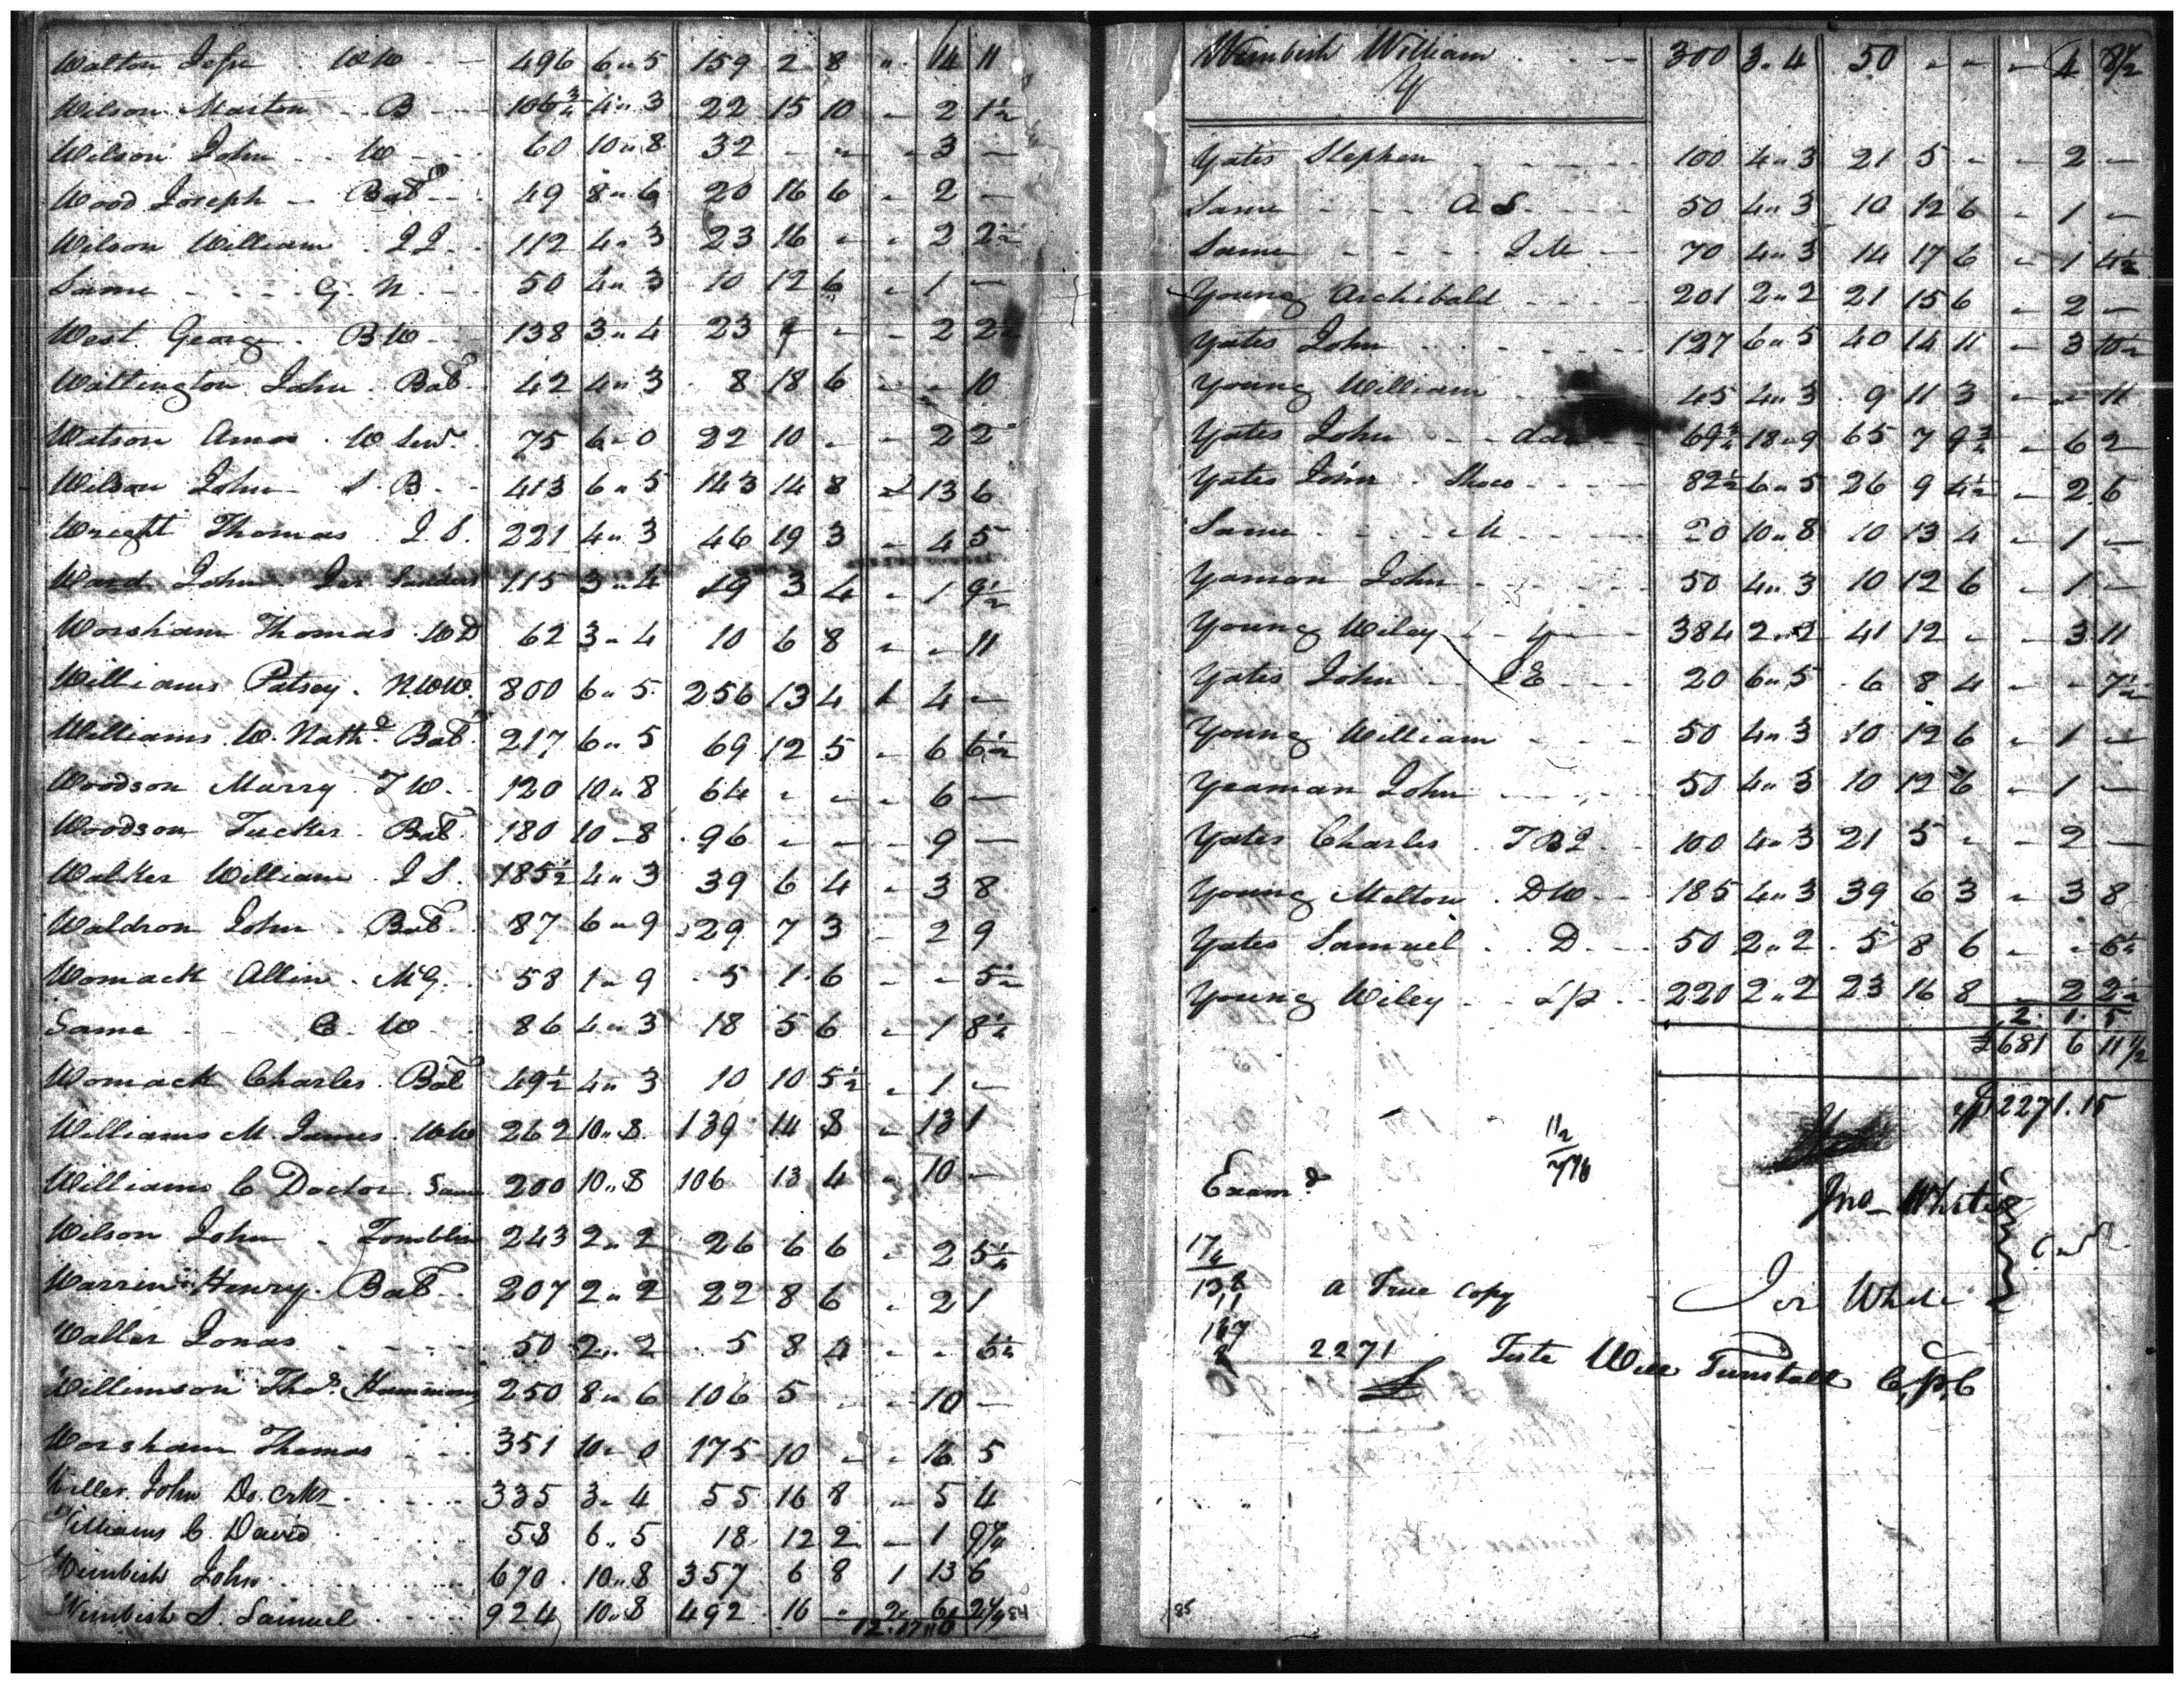 Walton Jesse WW 496 6 " 5 159 2 8 " 14 11
Wilson Marten B 106¾ 4 " 3 22 15 10 - 2 1½
Wilson John W 60 10 " 8 32 - - - 3 -
Wood Joseph Bal 49 8 " 6 20 16 6 - 2 -
Wilson William J J 112 4 " 3 23 16 - - 2 2½
Same G. N. 50 4 " 3 10 12 6 - 1 -
West George BW 138 3 " 4 23 - - - 2 2½
Wattington John Bal 42 4 " 3 8 18 6 - - 10
Watson Amos W Lew 75 6 - 0 22 10 - - 2 2
Wilson John S B 413 6 " 5 143 14 8 - 13 6
Wright Thomas J S. 221 4 " 3 46 19 3 - 4 5
Ward John Jer Sanders 115 3 " 4 19 3 4 - 1 9½
Worsham Thomas WD 62 3 " 4 10 6 8 - - 11
Williams Patsey NWW 800 6 " 5 256 13 4 1 4 -
Williams W. Nathd. Bal 217 6 " 5 69 12 5 - 6 6½
Woodson Murry T W. 120 10 " 8 64 - - - 6 -
Woodson Tucker Bal 180 10 - 8 96 - - - 9 -
Walker William J S. 185½ 4 " 3 39 6 4 - 3 8
Waldron John Bal 87 6 " 9 29 7 3 - 2 9
Womack Allin McG. 58 1 " 9 5 1 6 - - 5½
Same C. W 86 4 " 3 18 5 6 - 1 8½
Womack Charles Bal 49½ 4 " 3 10 10 5½ - 1 -
Williams M. James WW 262 10 " 8 139 14 8 - 13 1
Williams C Doctor Same 200 10 " 8 106 13 4 - 10 -
Wilson John Tomblin 243 2 " 2 26 6 6 - 2 5½
Warrin Henry Bal 207 2 " 2 22 8 6 - 2 1
Waller Jonas 50 2 " 2 5 8 4 - - 6½
Willimson Thos. Hammons 250 8 " 6 106 5 - - 10 -
Worsham Thomas 351 10 " 0 175 10 - - 16 5
Willer John Do. crks 335 3 - 4 55 16 8 - 5 4
Williams C. David 58 6 " 5 18 12 2 - 1 9¼
Wimbish John 670 10 " 8 357 6 8 1 13 6
Wimbish S. Samuel 924 10 " 8 492 16 - 2 6 2¼
12. 17. 6
84
Wimbish William 300 3 " 4 50 - - - 4 8½
Y
Yates Stephen 100 4 " 3 21 5 - - 2 -
Same A S. 50 4 " 3 10 12 6 - 1 -
Same J M 70 4 " 3 14 17 6 - 1 4½
Young Archibald 201 2 " 2 21 15 6 - 2 -
Yates John 127 6 " 5 40 14 11 - 3 10½
Young William 45 4 " 3 9 11 3 - - 11
Yates John 69¾ 18 " 9 65 7 9¾ - 6 2
Yates John Shoco 82½ 6 " 5 26 9 4½ - 2 6
Same M 20 10 " 8 10 13 4 - 1 -
Yamon John 50 4 " 3 10 12 6 - 1 -
Young Wiley 384 2 " 2 41 12 - - 3 11
Yates John J E 20 6 " 5 6 8 4 - - 7½
Young William 50 4 " 3 10 12 6 - 1 -
Yeaman John 50 4 " 3 10 12 6 - 1 -
Yates Charles T B J 100 4 " 3 21 5 - - 2 -
Young Melton DW 185 4 " 3 39 6 3 - 3 8
Yates Samuel D. 50 2 " 2 5 8 6 - - 6½
Young Wiley 220 2 " 2 23 16 8 - 2 2½
2. 1. 5
£681 6 11½
$2271.15
Examd
Jno White
a True copy
Jer White
2271
Teste Will Tunstall C.P.C
85